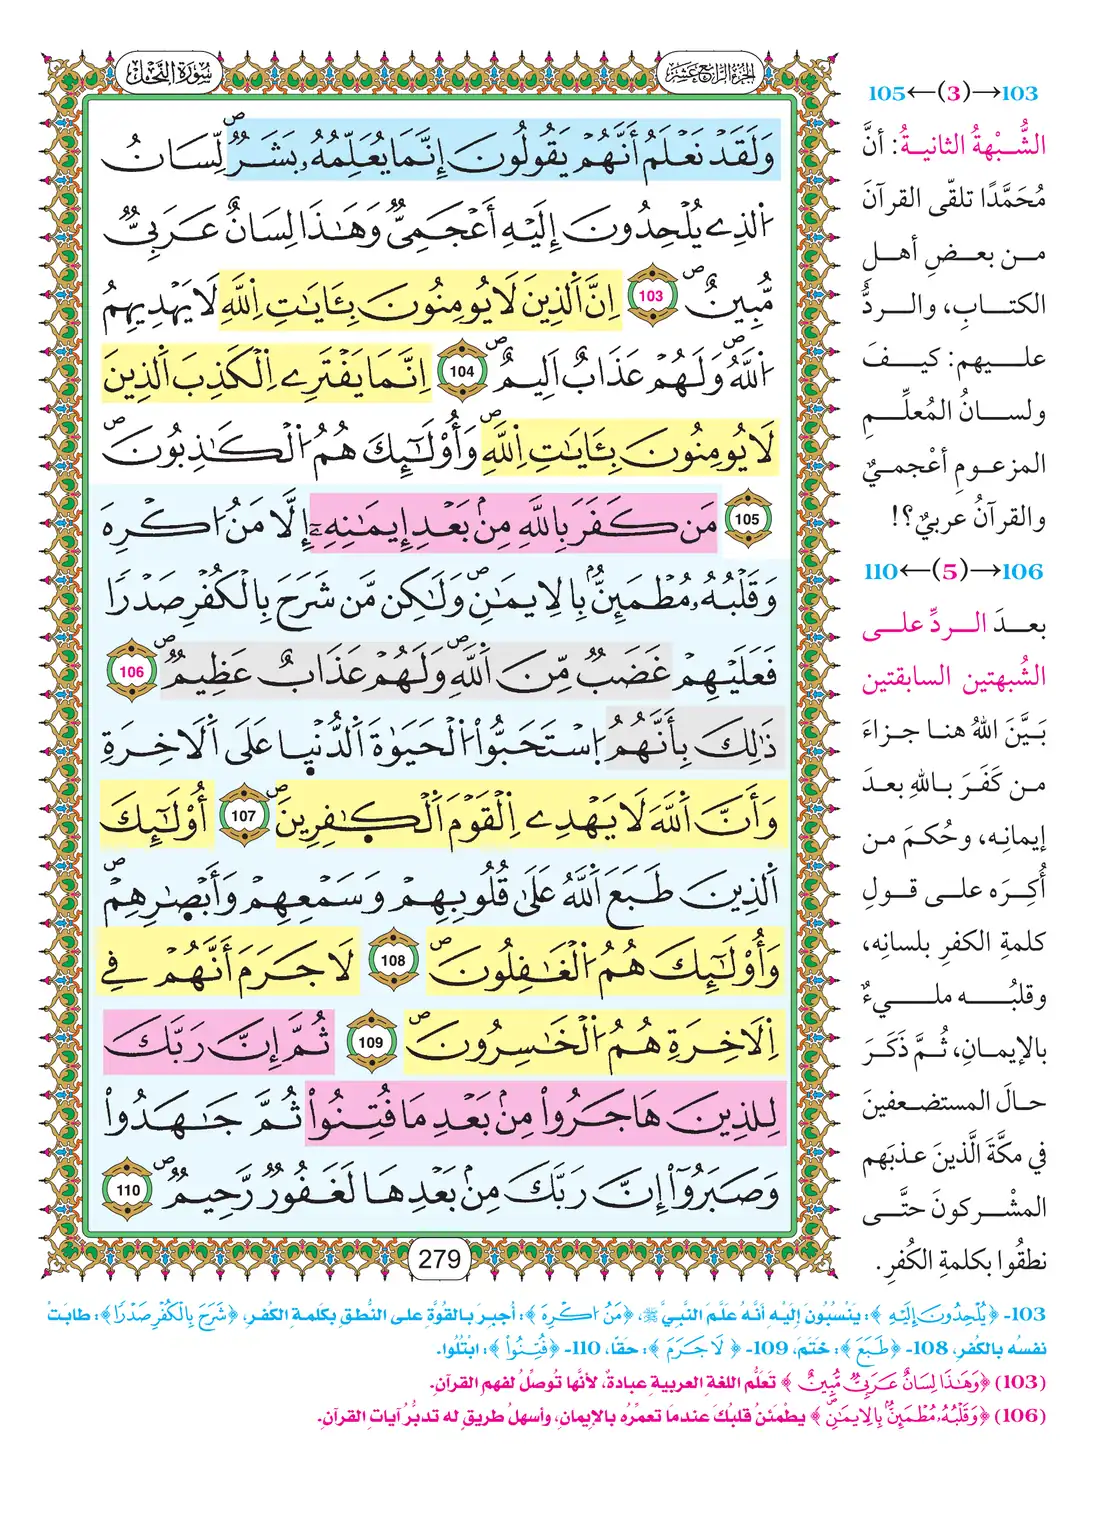 الجزء الرابع عشر
سورة النحل
وَلَقَدْ نَعْلَمُ أَنَّهُمْ يَقُولُونَ إِنَّمَا يُعَلِّمُهُۥ بَشَرٌۖ لِّسَانُ
اُ۬لذِے يُلْحِدُونَ إِلَيْهِ أَعْجَمِيّٞ وَهَٰذَا لِسَانٌ عَرَبِيّٞ
مُّبِينٌۖ 103 اِنَّ اَ۬لذِينَ لَا يُومِنُونَ بِـَٔايَٰتِ اِ۬للَّهِ لَا يَهْدِيهِمُ
اُ۬للَّهُۖ وَلَهُمْ عَذَابٌ اَلِيمٌۖ 104 اِنَّمَا يَفْتَرِے اِ۬لْكَذِبَ اَ۬لذِينَ
لَا يُومِنُونَ بِـَٔايَٰتِ اِ۬للَّهِۖ وَأُوْلَٰٓئِكَ هُمُ اُ۬لْكَٰذِبُونَۖ
105 مَن كَفَرَ بِاللَّهِ مِنۢ بَعْدِ إِيمَٰنِهِۦٓ إِلَّا مَنُ ا۟كْرِهَ
وَقَلْبُهُۥ مُطْمَئِنُّۢ بِالِايمَٰنِۖ وَلَٰكِن مَّن شَرَحَ بِالْكُفْرِ صَدْرٗا
فَعَلَيْهِمْ غَضَبٞ مِّنَ اَ۬للَّهِۖ وَلَهُمْ عَذَابٌ عَظِيمٞۖ 106
ذَٰلِكَ بِأَنَّهُمُ اُ۪سْتَحَبُّواْ اُ۬لْحَيَوٰةَ اَ۬لدُّنْي۪ا عَلَى اَ۬لَاخِرَةِ
وَأَنَّ اَ۬للَّهَ لَا يَهْدِے اِ۬لْقَوْمَ اَ۬لْكٰ۪فِرِينَۖ 107 أُوْلَٰٓئِكَ
اَ۬لذِينَ طَبَعَ اَ۬للَّهُ عَلَىٰ قُلُوبِهِمْ وَسَمْعِهِمْ وَأَبْصٰ۪رِهِمْۖ
وَأُوْلَٰٓئِكَ هُمُ اُ۬لْغَٰفِلُونَۖ 108 لَا جَرَمَ أَنَّهُمْ فِے
اِ۬لَاخِرَةِ هُمُ اُ۬لْخَٰسِرُونَۖ 109 ثُمَّ إِنَّ رَبَّكَ
لِلذِينَ هَاجَرُواْ مِنۢ بَعْدِ مَا فُتِنُواْ ثُمَّ جَٰهَدُواْ
وَصَبَرُوٓاْ إِنَّ رَبَّكَ مِنۢ بَعْدِهَا لَغَفُورٞ رَّحِيمٞۖ 110
279
103→(3)←105
الشُّبْهةُ الثانيةُ: أنَّ
مُحَمَّدًا تلقّى القرآنَ
من بعضِ أهلِ
الكتابِ، والردُّ
عليهم: كيفَ
ولسانُ المُعلِّمِ
المزعومِ أعْجميٌ
والقرآنُ عربيٌ؟!
106→(5)←110
بعدَ الردِّ على
الشُبهتين السابقتين
بَيَّنَ اللهُ هنا جزاءَ
من كَفَرَ باللهِ بعدَ
إيمانِه، وحُكمَ من
أُكِرَه على قولِ
كلمةِ الكفرِ بلسانِه،
وقلبُه مليءٌ
بالإيمانِ، ثُمَّ ذَكَرَ
حالَ المستضعفينَ
في مكَّةَ الَّذينَ عذبَهم
المشْركونَ حتَّى
نطقُوا بكلمةِ الكُفرِ.
103- ﴿يُلْحِدُونَ إِلَيْهِ﴾: يَنْسُبُونَ إِلَيْهِ أنَّهُ عَلَّمَ النَّبِيَّ ﷺ، ﴿مَنُ ا۟كْرِهَ﴾: أُجبِرَ بالقُوَّةِ على النُّطقِ بكَلمةِ الكُفرِ، ﴿شَرَحَ بِالْكُفْرِ صَدْرٗا﴾: طابَتْ
نفسُه بالكُفرِ، 108- ﴿طَبَعَ﴾: خَتَمَ، 109- ﴿لَا جَرَمَ﴾: حقًا، 110- ﴿فُتِنُواْ﴾: ابْتُلُوا.
(103) ﴿وَهَٰذَا لِسَانٌ عَرَبِيّٞ مُّبِينٌ﴾ تَعَلُّم اللغةِ العربيةِ عبادةٌ، لأنَّها تُوصِّلُ لفهمِ القرآنِ.
(106) ﴿وَقَلْبُهُۥ مُطْمَئِنُّۢ بِالِايمَٰنِۖ﴾ يطْمَئنُ قلبُكَ عندمَا تعمِّرُه بالإيمانِ، وأسهلُ طريقٍ له تدبُّرُ آياتِ القرآنِ.